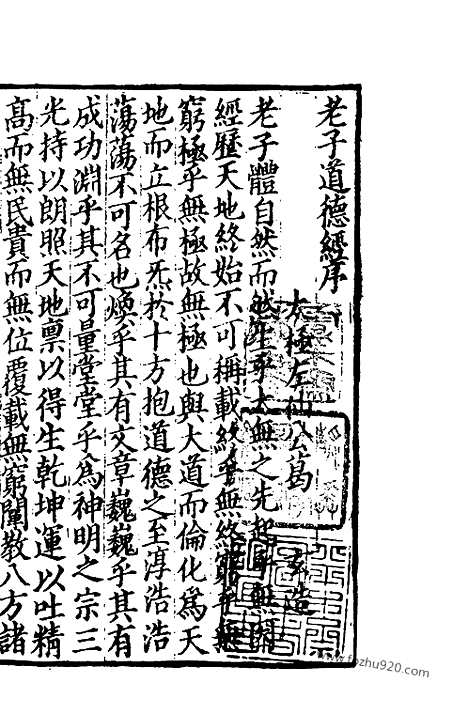 老子道德經序
太極左仙公葛 玄造
老子體自然而然生乎太無之先起乎無因
經歷天地終始不可稱載終乎無終窮乎無
窮極乎無極故無極也與大道而倫化爲天
地而立根布炁於十方抱道德之至淳浩浩
蕩蕩不可名也煥乎其有文章巍巍乎其有
成功淵乎其不可量堂堂乎爲神明之宗三
光持以朗照天地禀以得生乾坤運以吐精
高而無民貴而無位覆載無窮闡教八方諸
www.fozhu920.com